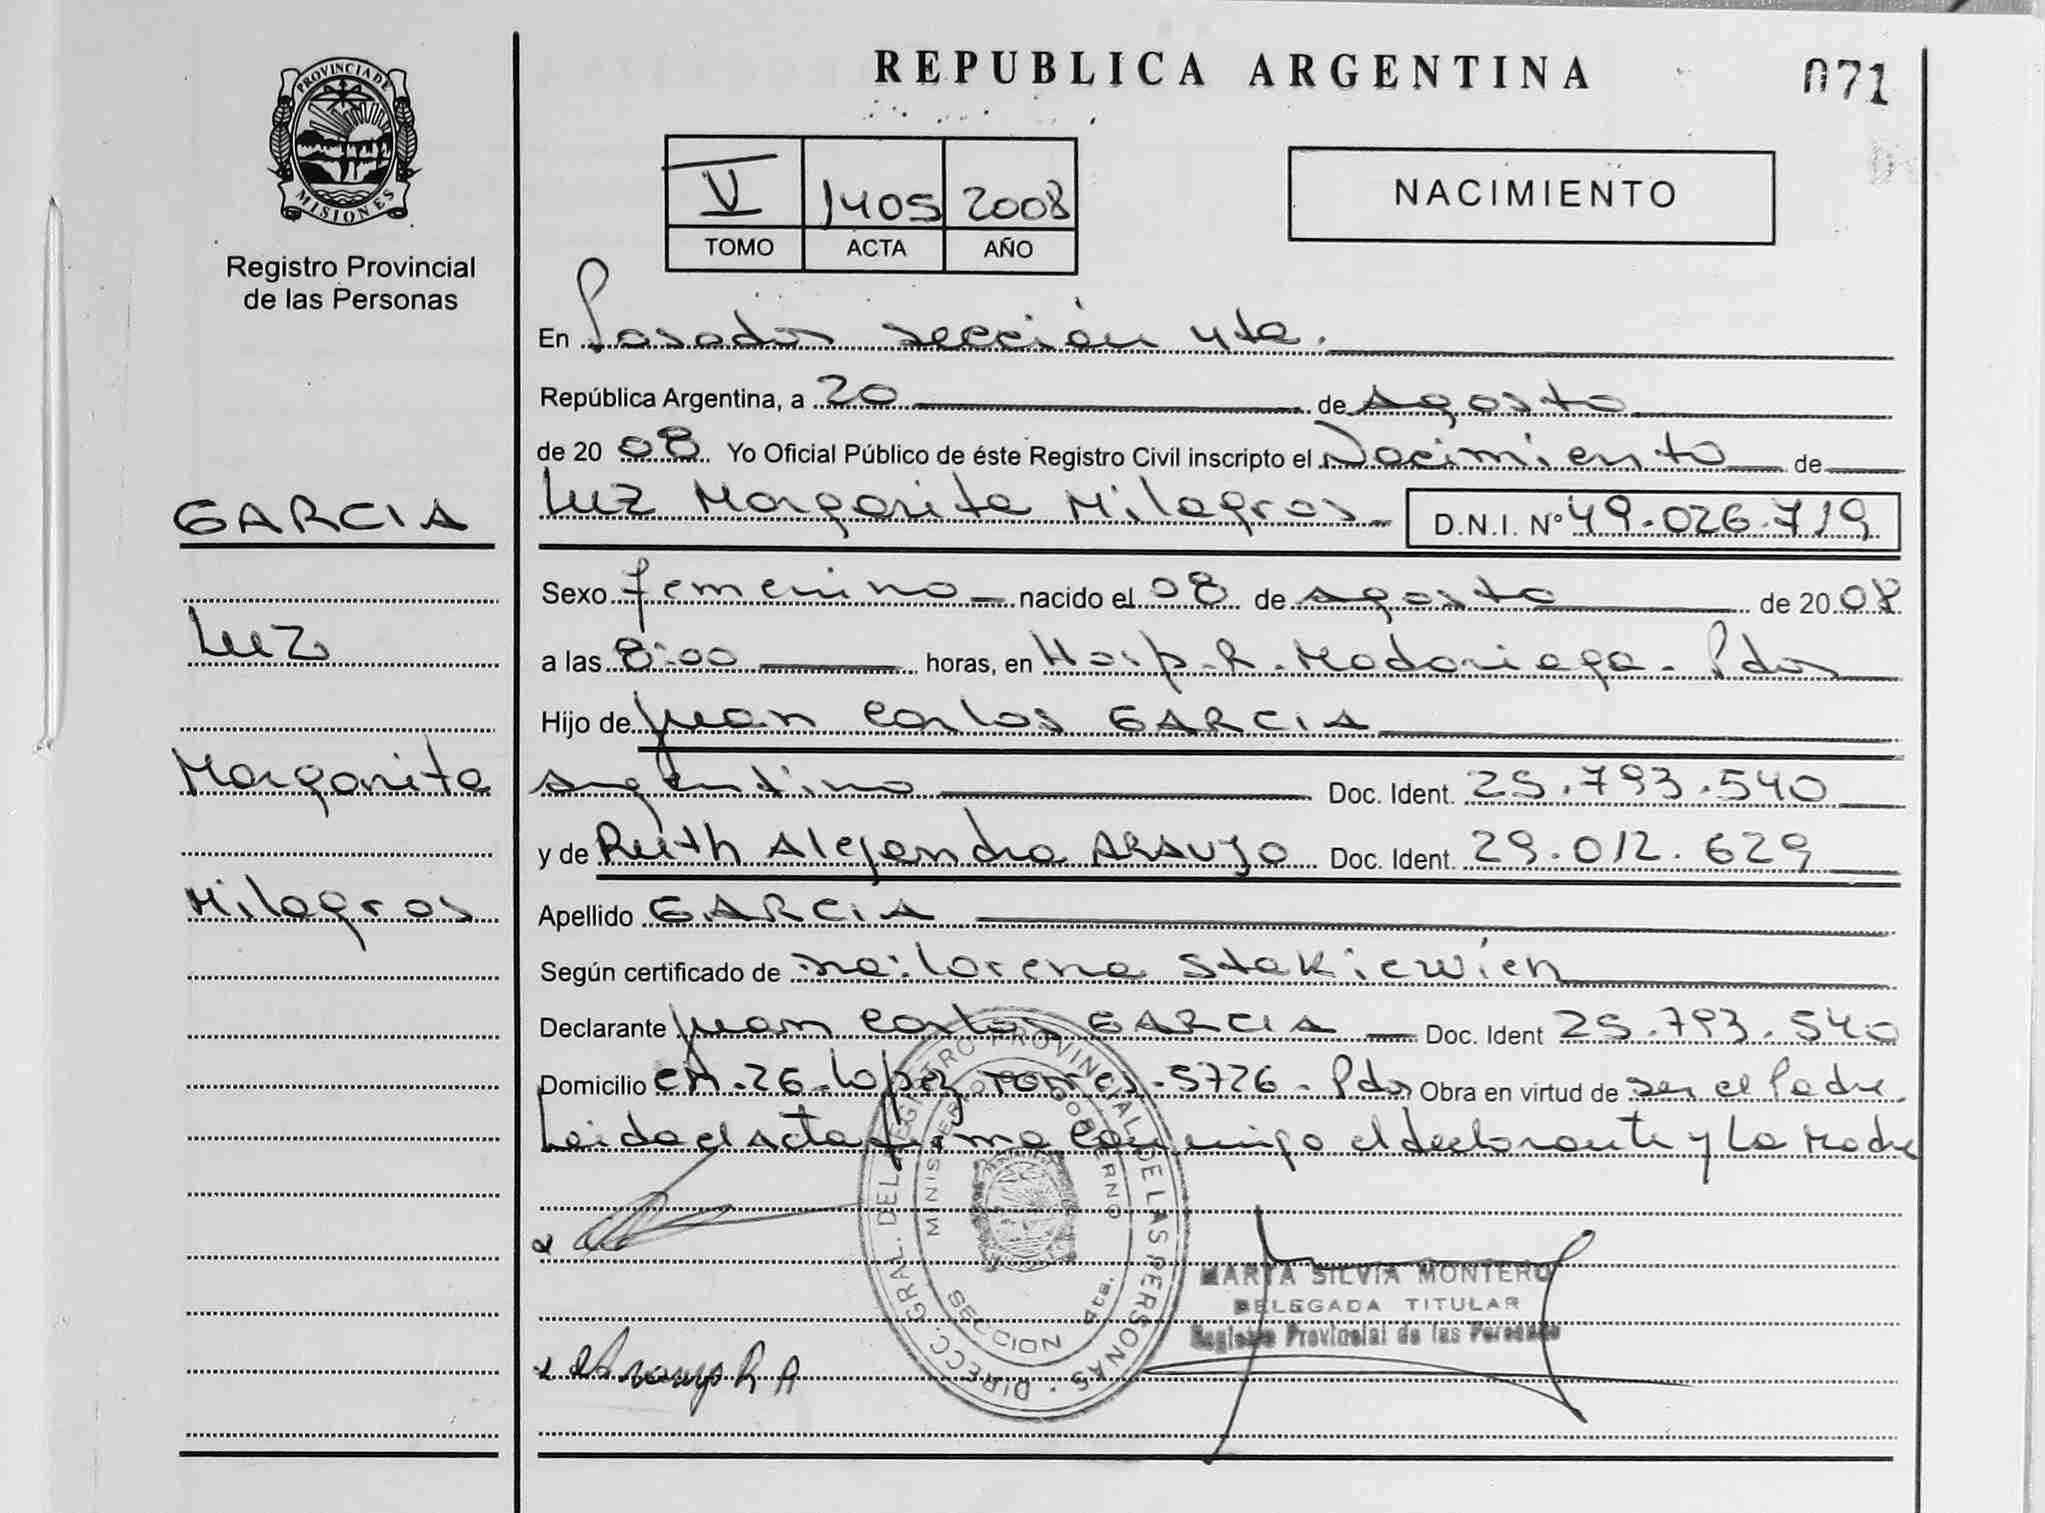 REPUBLICA ARGENTINA
071
PROVINCIA DE
MISIONES
Registro Provincial
de las Personas
V 1405 2008
TOMO ACTA AÑO
NACIMIENTO
En Posadas sección 4ta.
República Argentina, a 20 de Agosto
de 20 08 Yo Oficial Público de éste Registro Civil inscripto el Nacimiento de
GARCIA
Luz Margarita Milagros D.N.I. N° 49.026.719
Sexo femenino nacido el 08 de Agosto de 20 08
Luz
a las 8:00 horas, en Hosp. R. Madariaga. Pdas
Hijo de Juan Carlos GARCIA
Margarita
Argentino Doc. Ident. 25.793.540
y de Ruth Alejandra ARAUJO Doc. Ident. 29.012.629
Milagros
Apellido GARCIA
Según certificado de Lorena Stakiewien
Declarante Juan Carlos GARCIA Doc. Ident 25.793.540
Domicilio CH. 26. Lopez Torres. 5726. Pdas Obra en virtud de ser el Padre.
Leida el Acta firma conmigo el declarante y La Madre
DIRECC. GRAL. DEL REGISTRO PROVINCIAL DE LAS PERSONAS
MINISTERIO DE GOBIERNO
SECCION 4ta.
MARTA SILVIA MONTERO
DELEGADA TITULAR
Registro Provincial de las Personas